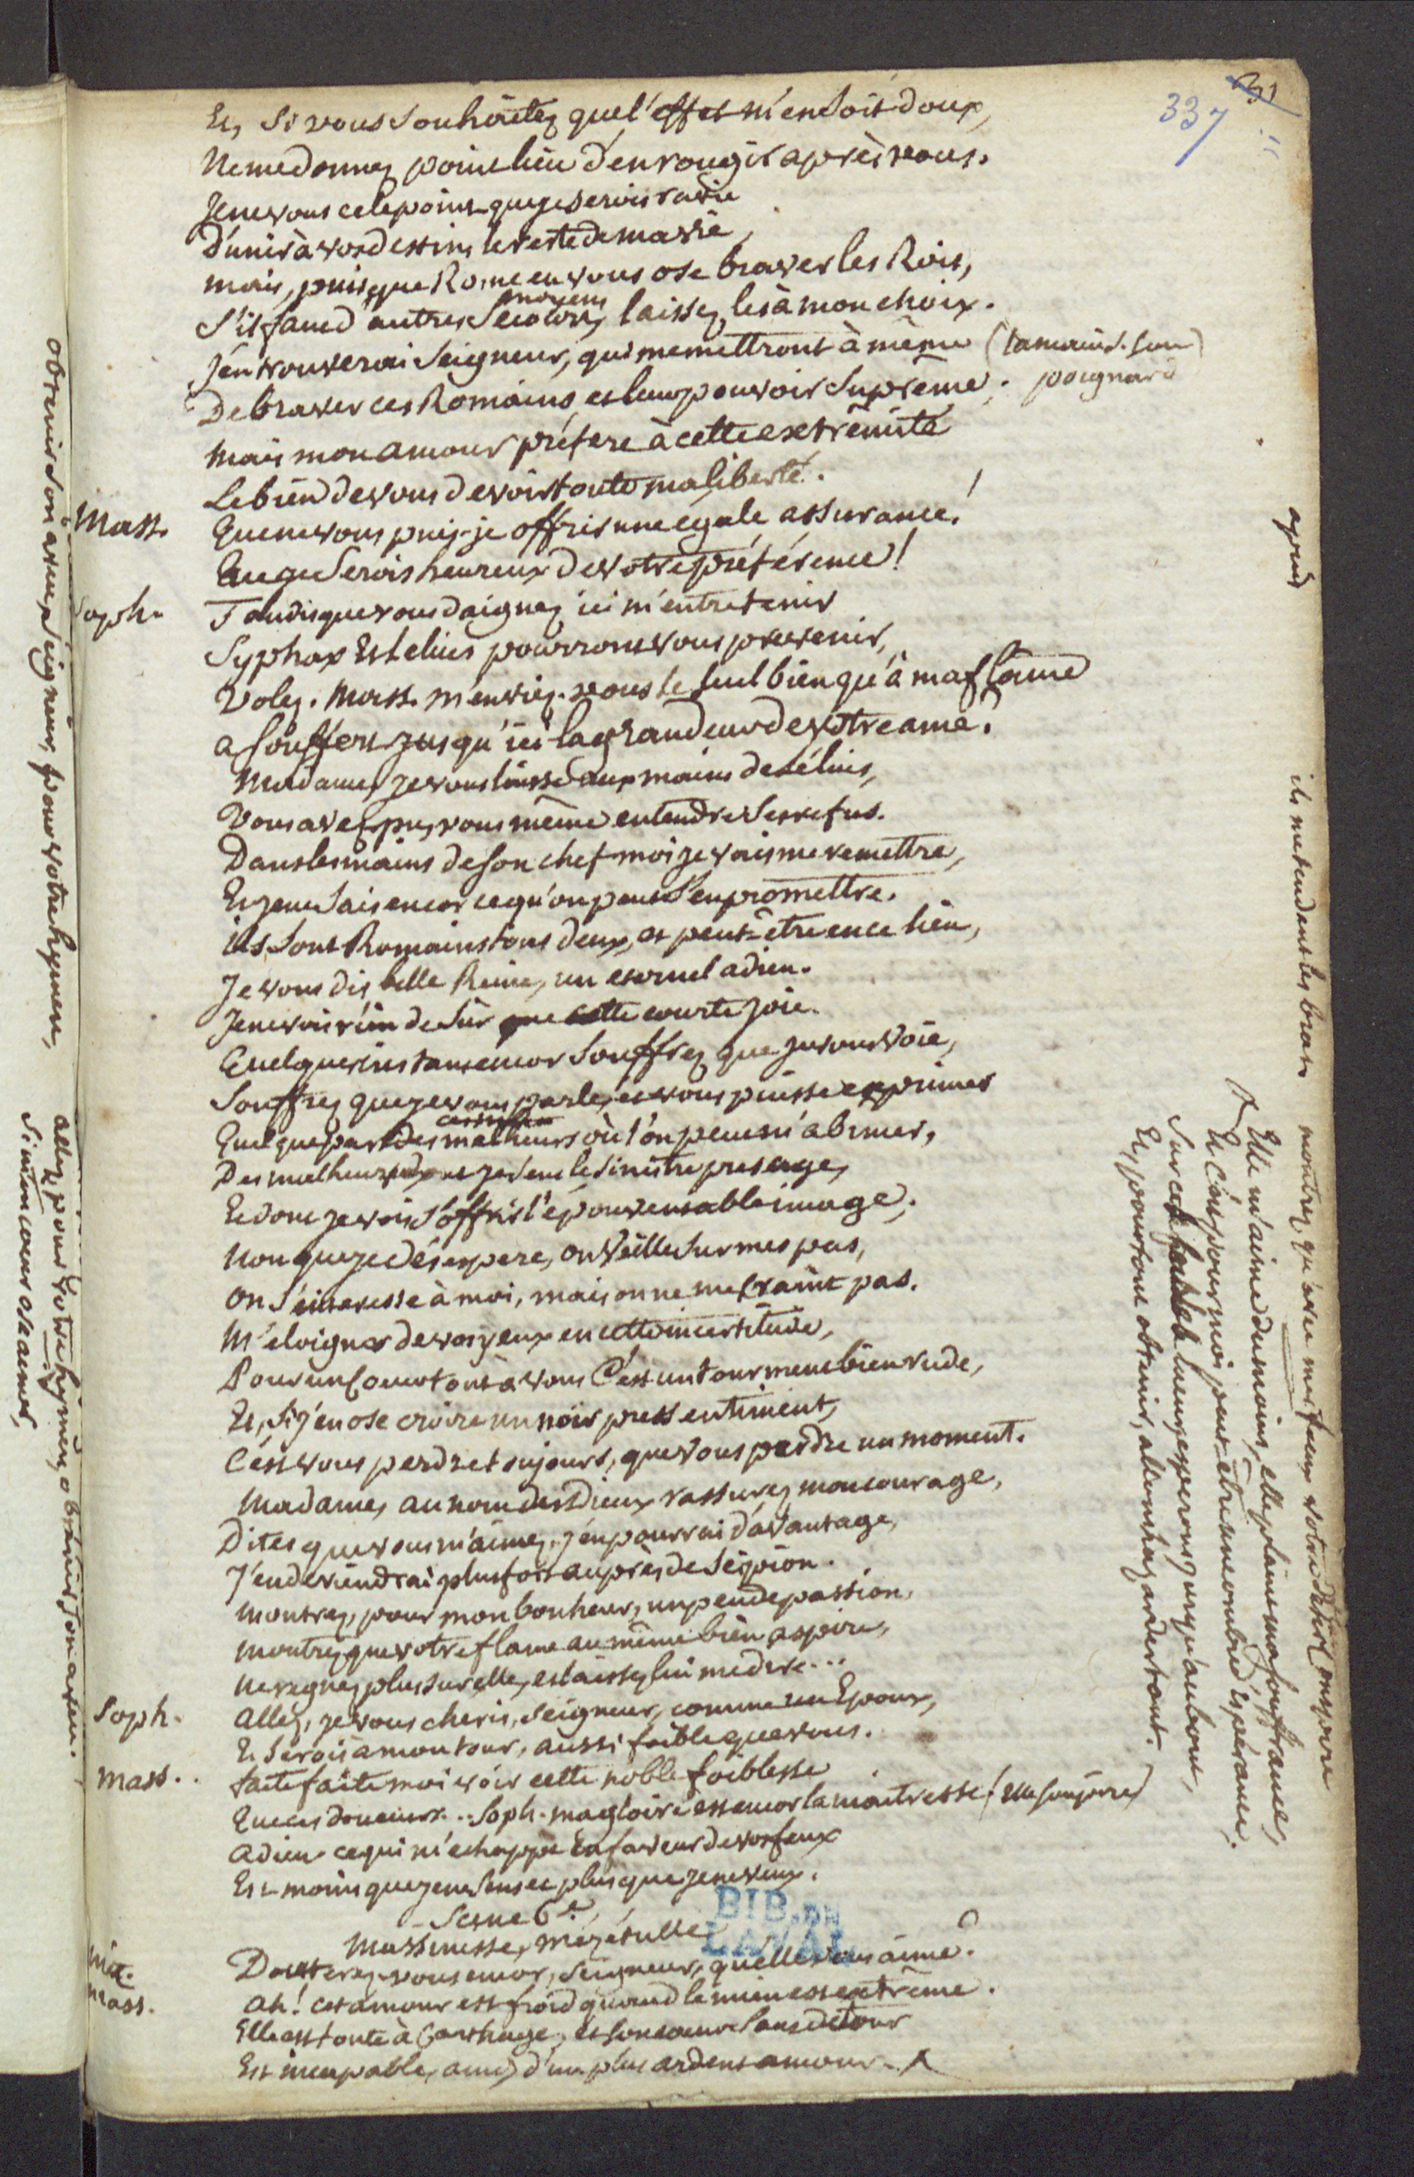 337
31
Et, si vous souhaitez que l'effet m'en soit doux,
Ne me donnez point lieu d'en rougir après vous.
Je ne vous cele point que je serois ravie
D'unir à vos destins le reste de ma vie,
mais, puisque Rome en vous ose braver les Rois,
S'il faut d'autres secours moyens laissez les à mon choix.
J'en trouverai Seigneur, qui me mettront à même (la main s. son
De braver ces Romains et leur pouvoir suprême. poignard)
Mais mon amour préfere à cette extrêmité
Le bien de vous devoir toute ma liberté.
Mass. Que ne vous puis-je offrir une égale assurance!
Que je serois heureux de votre préférence!
Soph. Tandis que vous daignez ici m'entretenir
Syphax Et Lelius pourront vous prevenir,
Volez. Mass. m'enviez-vous le seul bien qu'à ma flame
a souffert jusqu'ici la grandeur de votre ame.
Madame, je vous laisse aux mains de Lélius,
Vous avez pu, vous même entendre ses refus.
Dans les mains de son chef moi je vais me remettre,
Et je ne sais encor ce qu'on peut s'en promettre.
ils sont Romains tous deux, et peut-être en ce lieu,
Je vous dis belle Reine, un eternel adieu.
Je ne vois rien de sûr que cette courte joie.
Quelques instans encor souffrez que je vous voie,
Souffrez que je vous parle, et vous puisse exprimer
Quelque part des malheurs où l'on peut m'abimer,
Des malheurs dont je sens le sinistre presage,
Et dont je vois s'offrir l'épouventable image.
Non que je désespere, on veille sur mes pas,
On s'interesse à moi, mais on ne me craint pas.
M'eloigner de vos yeux en cette incertitude,
Pour un coeur tout à vous C'est un tourment bien rude,
Et, si j'en ose croire un noir pressentiment,
C'est vous perdre toujours, que vous perdre un moment.
Madame, au nom des Dieux rassurez mon courage,
Dites que vous m'aimez, j'en pourrai davantage,
J'en deviendrai plus fort auprès de Scipion.
Montrez, pour mon bonheur, un peu de passion,
Montrez que votre flame au même bien aspire,
Ne regnez plus sur elle, et laissez lui me dire...
Soph. Allez, je vous cheris, Seigneur, comme un Epoux,
Et serois à mon tour, aussi foible que vous.
Mass. faite faite moi voir cette noble foiblesse
Que ces douceurs... Soph. ma gloire est encor la maitresse (Elle soupire)
Adieu. ce qui m'echappe en faveur de vos feux
Est moins que je ne sens et plus que je ne veux.
Scene 6e.
Massinisse, Mézétulle
Mez. Douterez-vous encor, Seigneur, qu'elle vous aime?
Mass. Ah! cet amour est froid quand le mien est extrême.
Elle est toute à Carthage, et son coeur sans détour
Est incapable, ami, d'un plus ardent amour.
BIB. DE
LAVAL
après
ils me tendent les bras
montrez qu'avec mes feux votre desir conspire
Elle m'aime du moins, elle plaint ma souffrance,
Et c'est pour moi peut-être une ombre d'espérance.
Sur ce lueur, esperons jusqu'au bout,
Et, pour tout obtenir, allons hazarder tout.
obtenir son aveu, Seigneur, pour votre hymen,
allez pour votre hymen, obtenir son aveu.
Si mon coeur ose aimer,